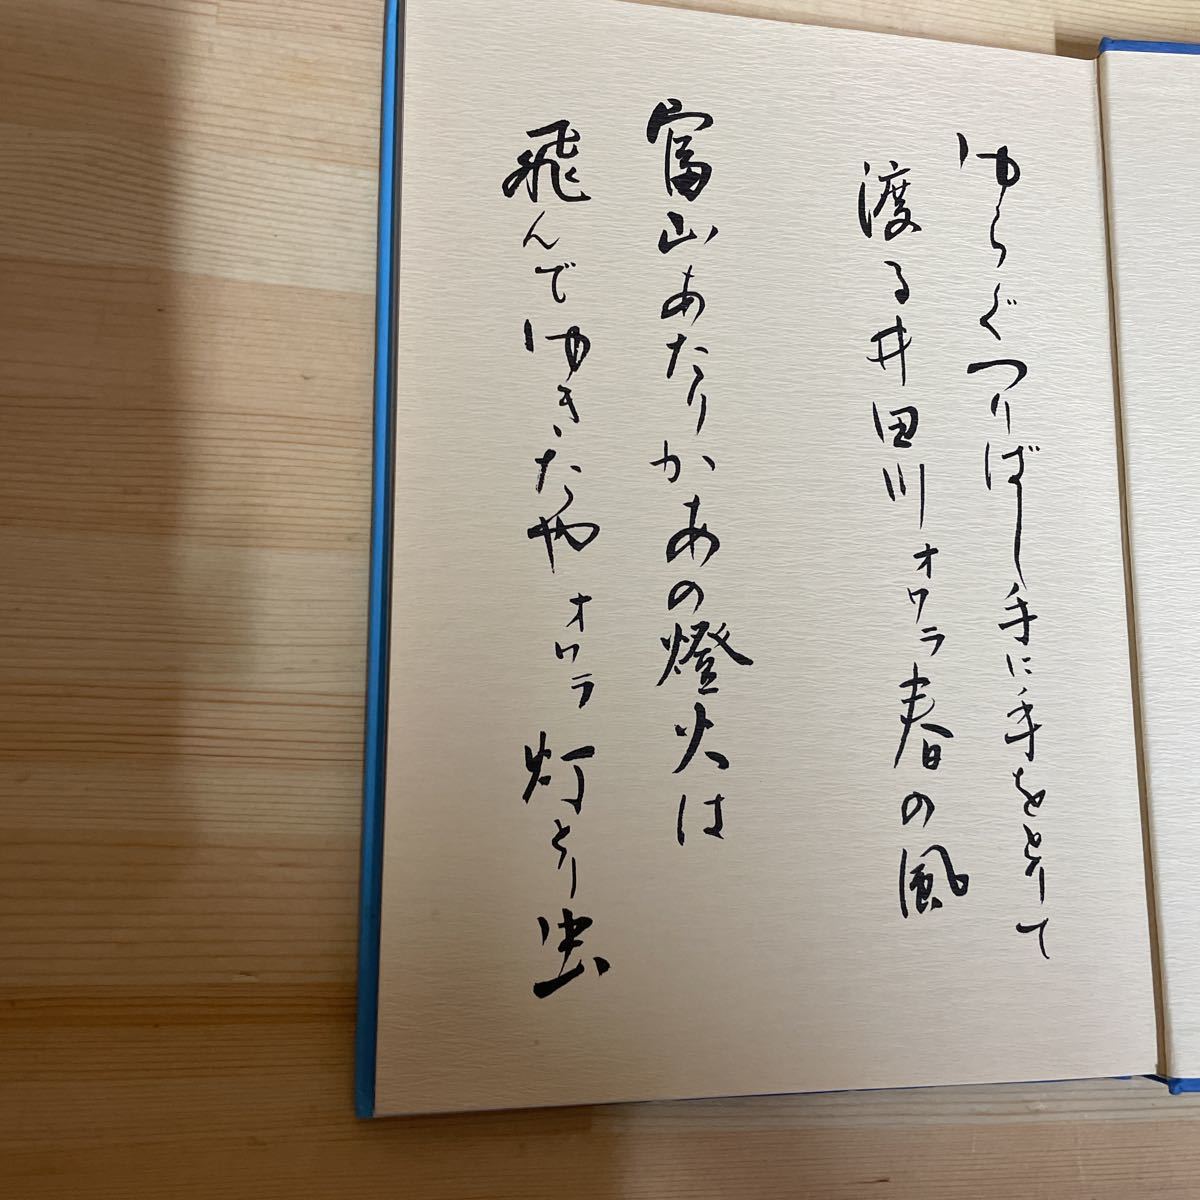 ゆらぐつりばし手に手をとりて
渡る井田川オワラ春の風
富山あたりかあの燈火は
飛んでゆきたやオワラ灯とり虫